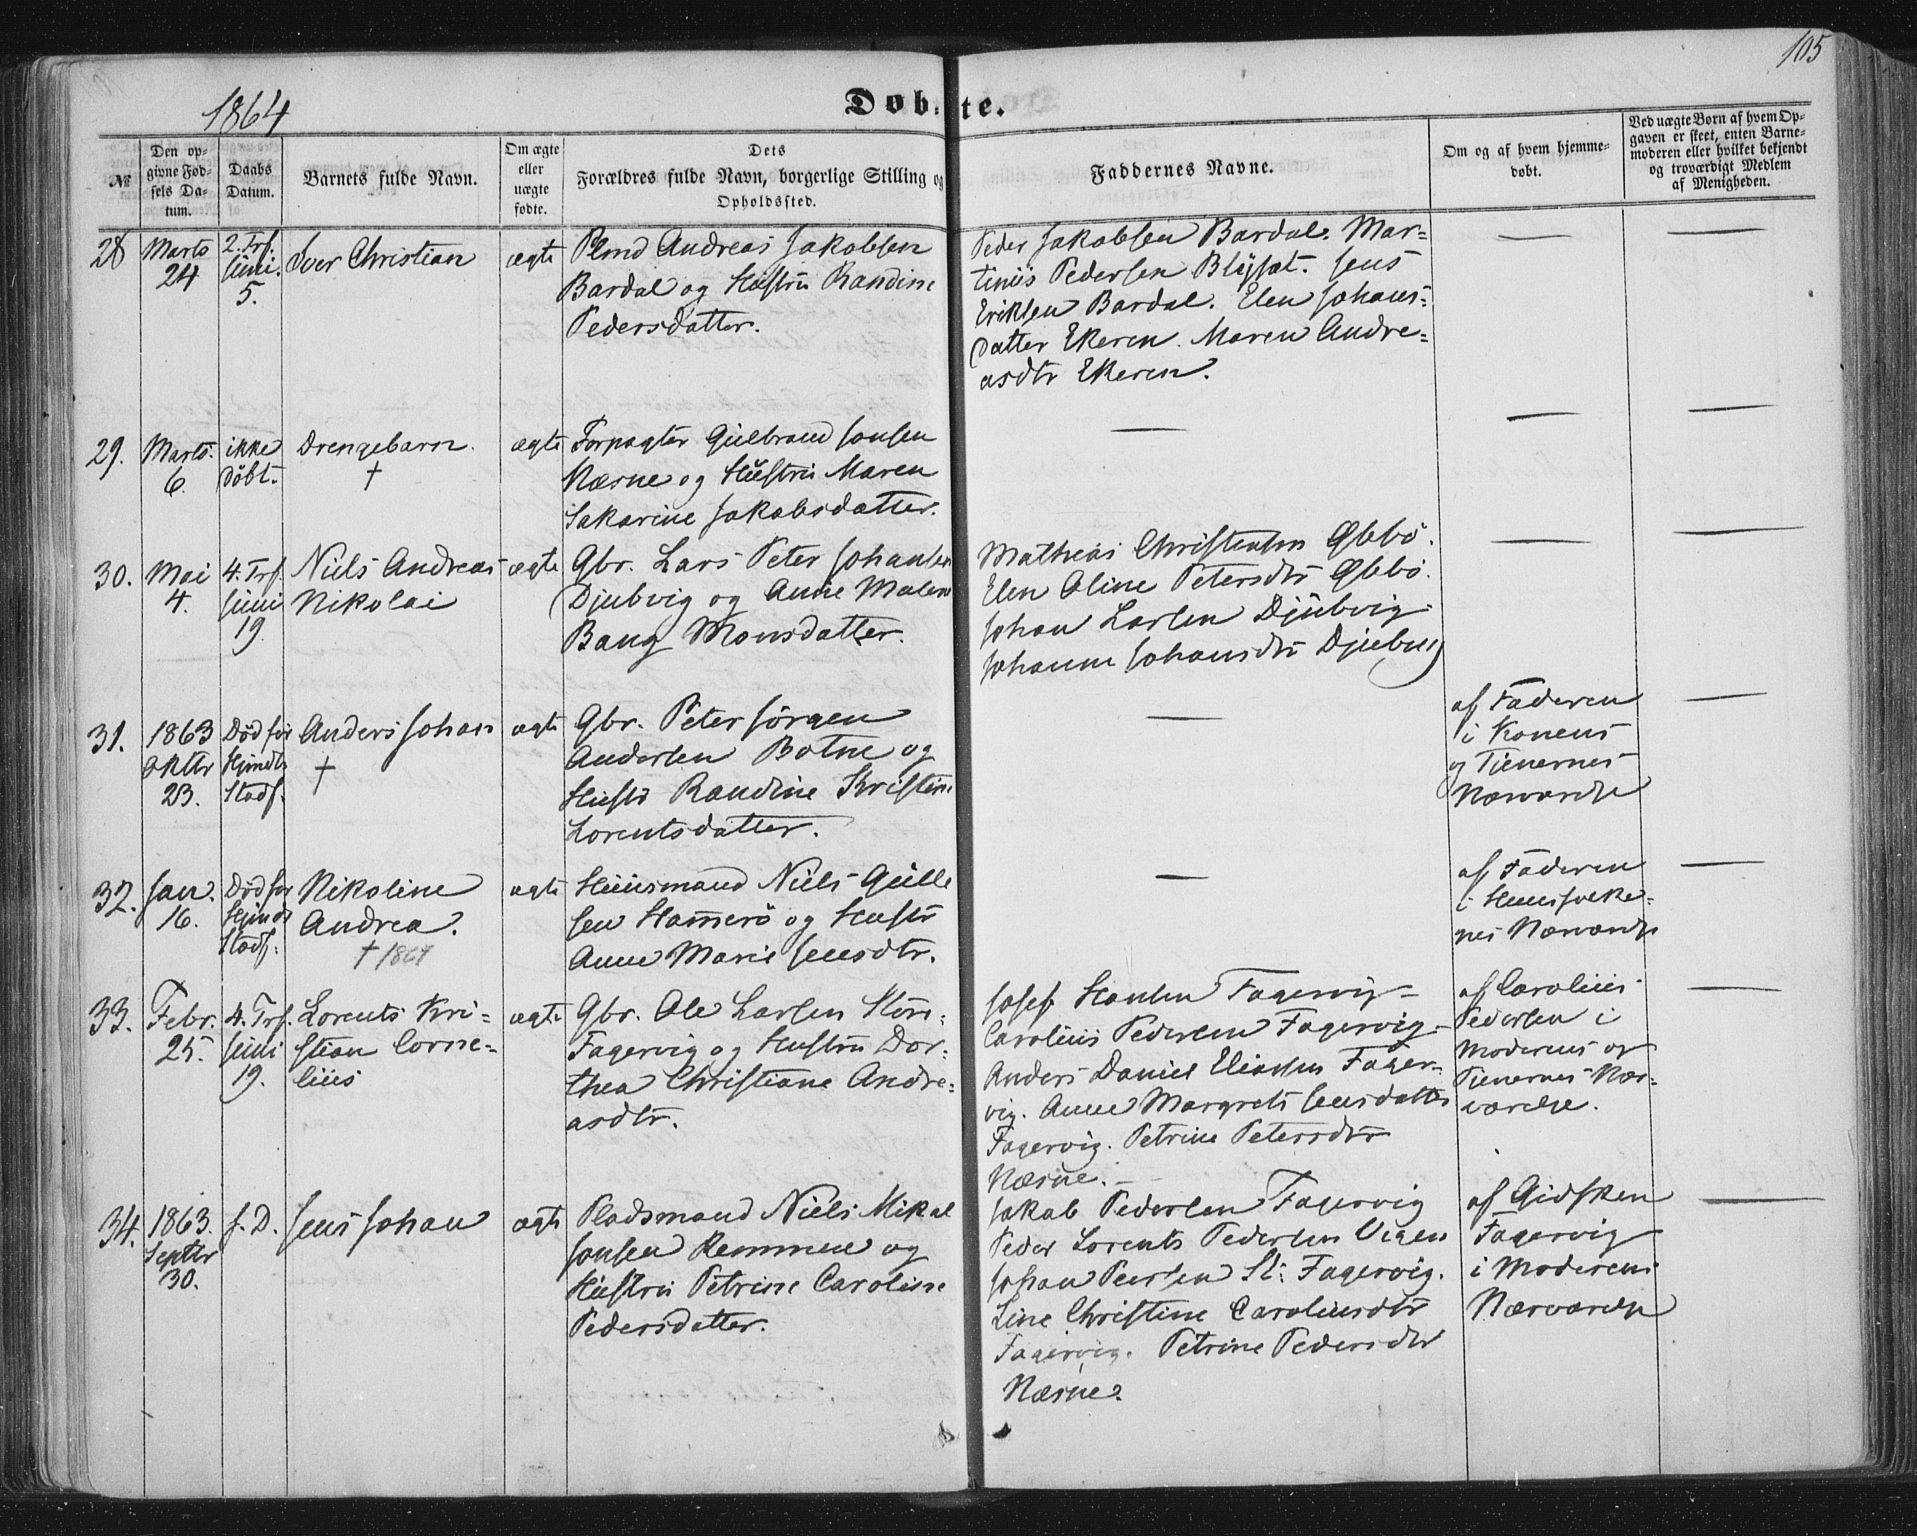 105
1864
Døbte.
№
Den op-
givne Fød-
sels Da-
tum.
Daabs
Datum.
Barnets fulde Navn.
Om ægte
eller
uægte
fødte.
Dets
Forældres fulde Navn, borgerlige Stilling og
Opholdssted.
Faddernes Navne.
Om og af hvem hjemme-
døbt.
Ved uægte Børn af hvem Op-
gaven er skeet, enten Barne-
moderen eller hvilket bekjendt
og troværdigt Medlem
af Menigheden.
28
Marts
24
2. Trf.
Juni.
5.
Iver Christian
ægte
Plmd Andreas Jakobsen
Bardal og Hustru Randine
Pedersdatter.
Peder Jakobsen Bardal. Mar-
tinus Pedersen Blysæt. Jens
Eriksen Bardal. Elen Johans-
datter Ekeren. Maren Andre-
asdtr Ekeren.
—
—
29.
Marts.
6.
ikke
døbt.
Drengebarn.
†
ægte
Forpagter Gulbrand Jonsen
Næsne og Hustru Maren
Sakarine Jakobsdatter.
—
—
—
30.
Mai
4.
4. Trf.
Juni
19.
Niels Andreas
Nikolai
ægte
Gbr. Lars Peter Johansen
Djubvig og Anne Malene
Bang Monsdatter.
Mathias Christensen Øbbø.
Elen Oline Petersdtr Øbbø.
Johan Larsen Djubvig.
Johanne Johansdtr Djubvig
—
—
31.
1863
Oktbr
23.
Død før
Hjmdb
Stadf.
Anders Johan
†
ægte
Gbr. Peter Jørgen
Andersen Botne og
Hustr Randine Kristine
Lorentsdatter.
—
af Faderen
i Konens
og Tjenernes
Nærværelse
—
32.
Jan.
16.
Død før
Hjmdb
Stadf.
Nikoline
Andrea.
† 1864
ægte
Huusmand Niels Gulle
sen Hamerø og Hustr
Anne Marie Jensdtr.
—
af Faderen
i Huusfolke-
nes Nærværelse
—
33.
Febr.
25.
4. Trf.
Juni
19.
Lorents Kri-
stian Corne-
lius
ægte
Gbr. Ole Larsen Stor-
Fagervig og Hustru Dor-
thea Christiane Andre-
asdtr.
Josef Hansen Fagervig
Carolius Pedersen Fagervig
Anders Daniel Eliassen Fager-
vig. Anne Margrete Jensdatter
Fagervig. Petrine Petersdtr
Næsne.
af Carolius
Pedersen i
Moderens og
Tjenernes Nær-
værelse.
—
34.
1863.
Septbr
30.
f. D.
Jens Johan
ægte
Pladsmand Niels Mikal
Jonsen Remmene og
Hustru Petrine Caroline
Pedersdatter.
Jakob Pedersen Fagervig
Peder Lorents Pedersen Vigen
Johan Peersen St: Fagervig.
Line Christine Caroliusdtr
Fagervig. Petrine Pedersdtr
Næsne.
af Gidsken
Fagervig
i Moderens
Nærværelse
—